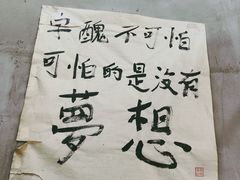 卓醜不可怕
可怕的是沒有
夢想